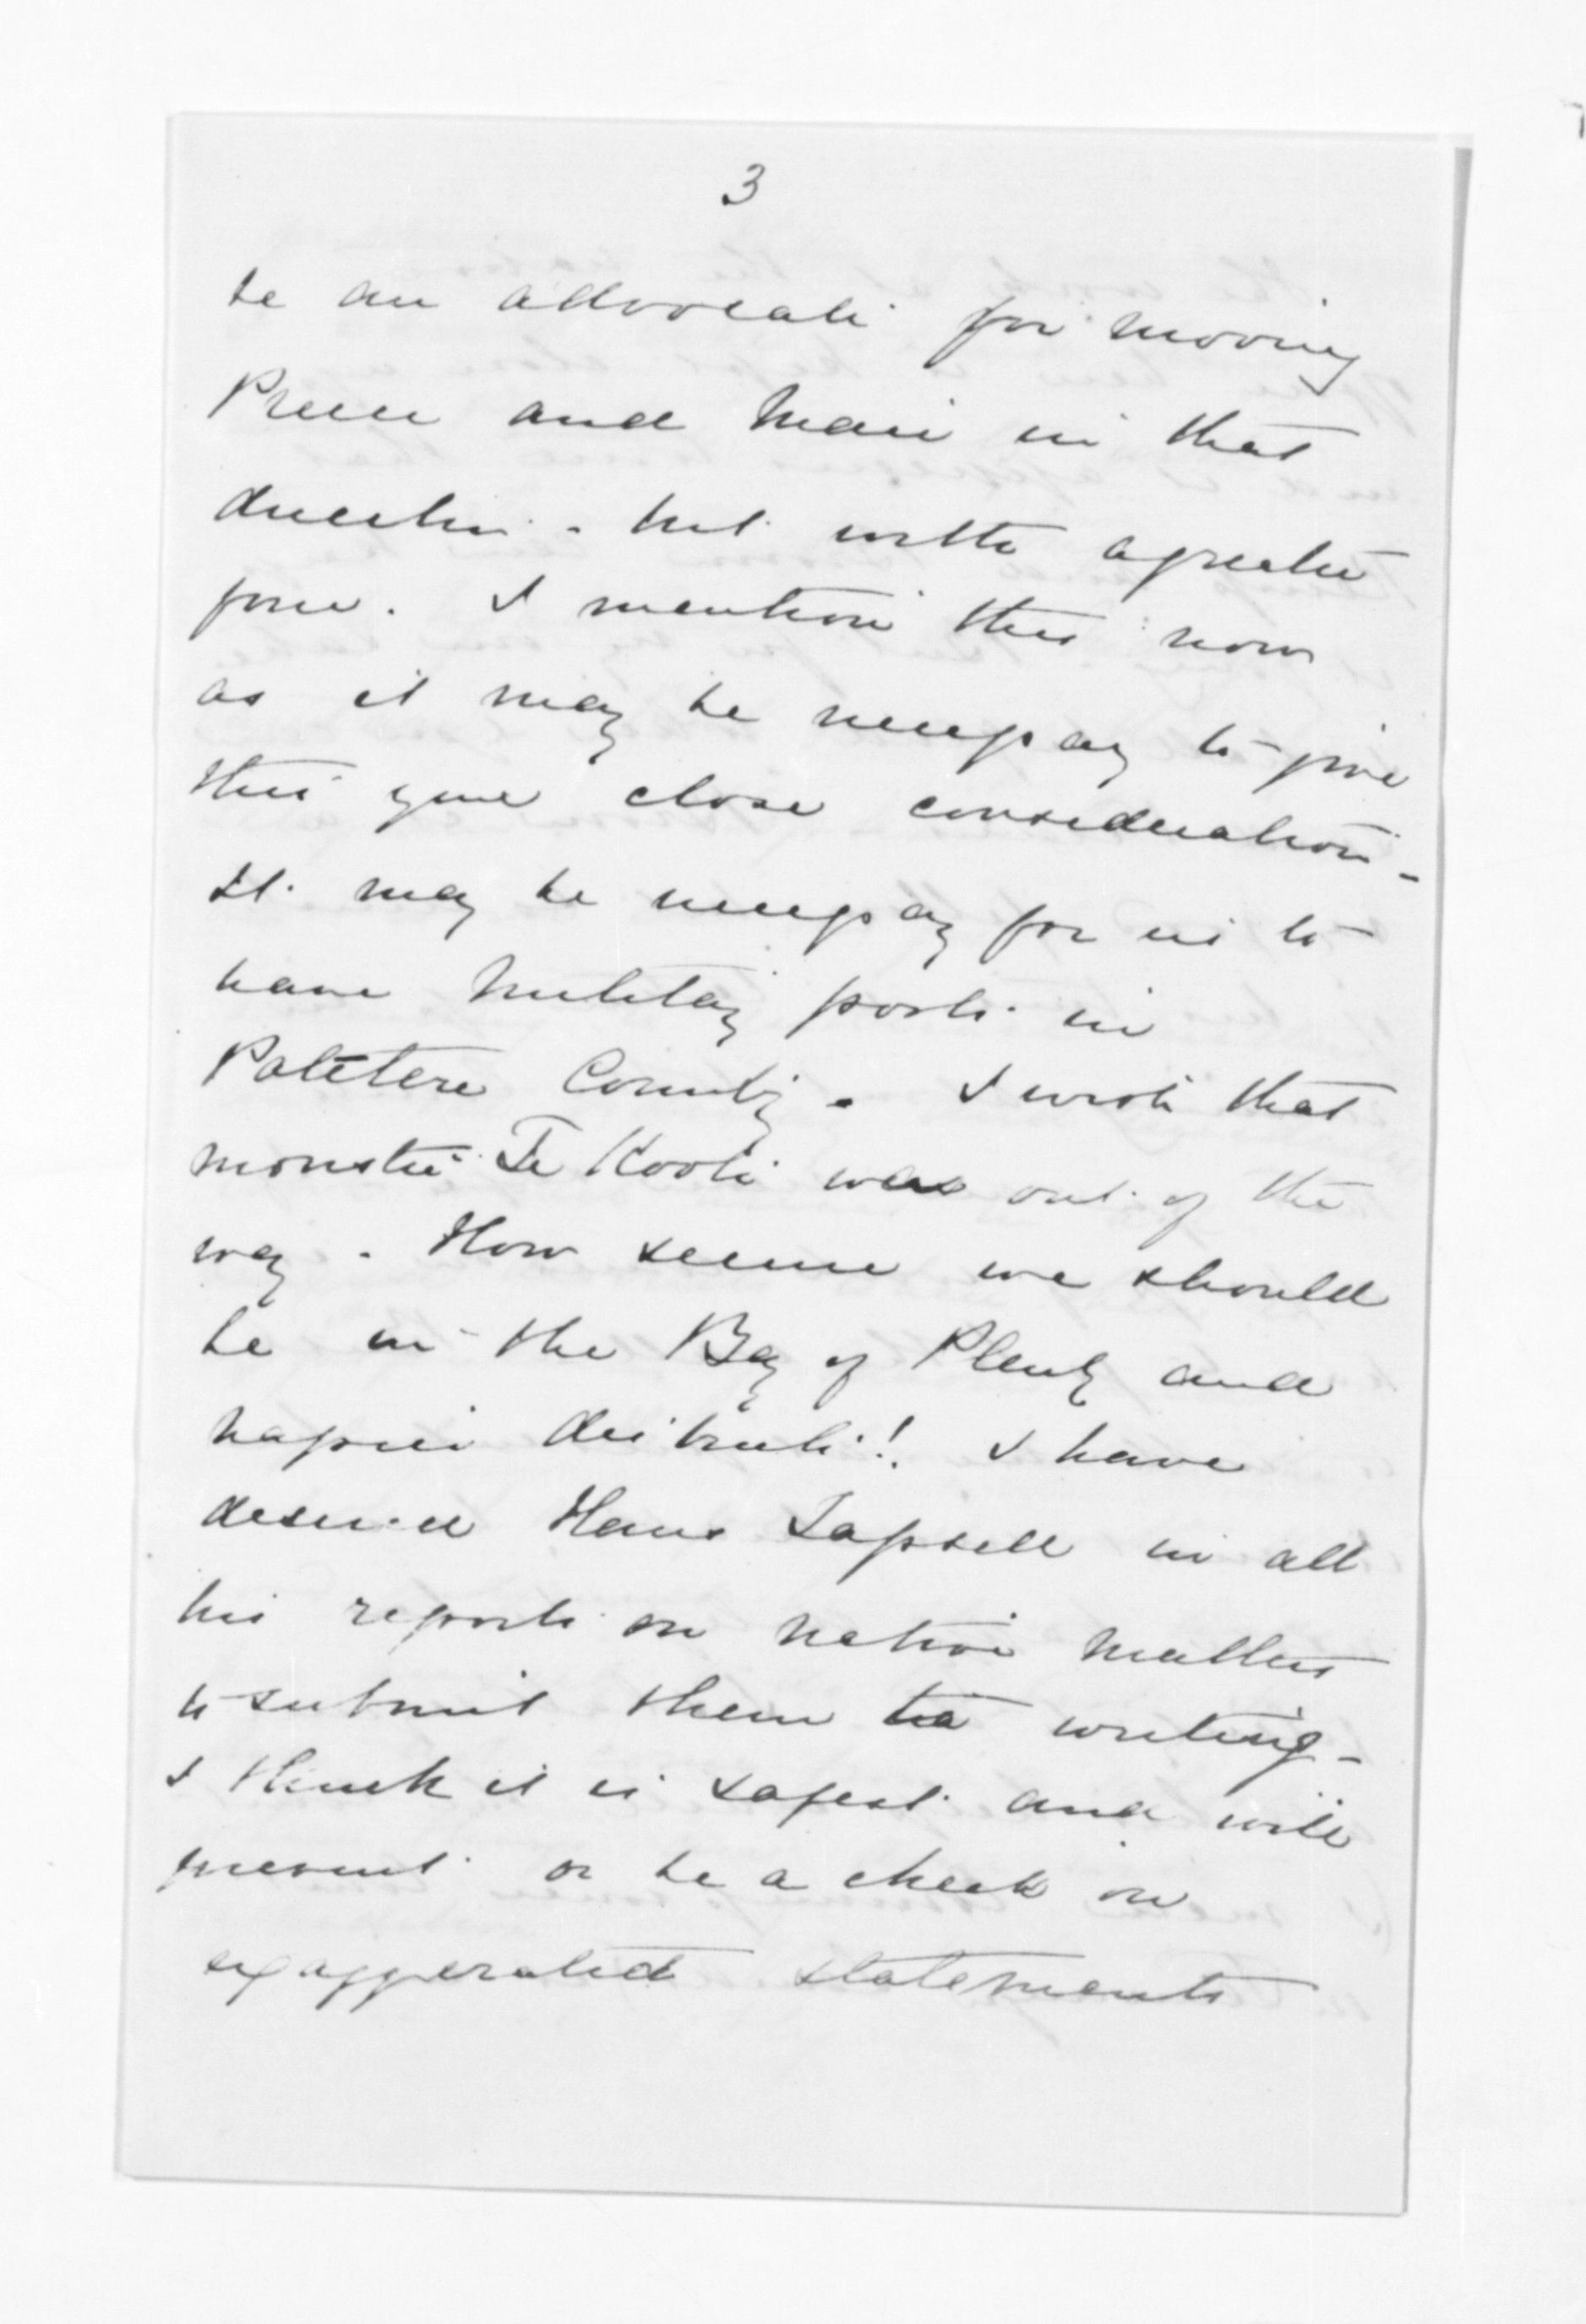 3
be an advocate for moving
Preece and Mair in that
direction - but with a greater
force. I mention this now
as it may be necessary to give
this your close consideration -
It may be necessary for us to
have Military posts in
Patetere Country. I wish that
monster Te Kooti was out of the
way. How secure we should
be in the Bay of Plenty and
Napier districts! I have
desired Hans Tapsell in all
his reports on native matters
to submit them in writing -
I think it is safest and will
prevent or be a check on
exaggerated statements